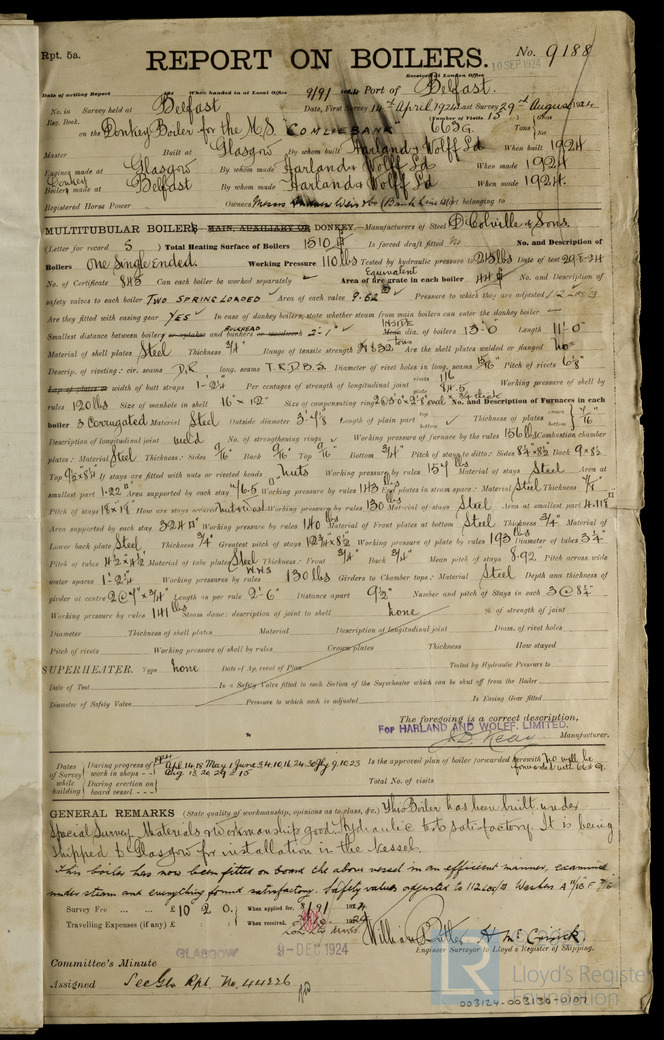 Rpt. 5a.
REPORT ON BOILERS. No. 9188
Received at London Office 10 SEP 1924
Date of writing Report 192 When handed in at Local Office 9/9/ 1924 Port of Belfast.
No. in Survey held at Belfast Date, First Survey 14th April 1924 Last Survey 29th August 1924
Reg. Book. (Number of Visits 15)
on the Donkey Boiler for the M.S. "COMLIEBANK" 663G. Tons
Master Built at Glasgow By whom built Harland & Wolff Ld When built 1924
Engines made at Glasgow By whom made Harland & Wolff Ld When made 1924
Donkey Boilers made at Belfast By whom made Harland & Wolff Ld When made 1924.
Registered Horse Power Owners Messrs Andrew Weir & Co (Bank Line Ld) Port belonging to
MULTITUBULAR BOILERS MAIN, AUXILIARY OR DONKEY.—Manufacturers of Steel D. Colville & Sons.
(Letter for record S) Total Heating Surface of Boilers 1510 Is forced draft fitted No No. and Description of
Boilers One Single Ended. Working Pressure 110 lbs Tested by hydraulic pressure to 215 lbs Date of test 29-8-24
No. of Certificate 843 Can each boiler be worked separately ✓ Equivalent Area of fire grate in each boiler 44 No. and Description of
safety valves to each boiler TWO SPRING LOADED Area of each valve 9.62 Pressure to which they are adjusted 112 LBS
Are they fitted with easing gear YES In case of donkey boilers, state whether steam from main boilers can enter the donkey boiler —
Smallest distance between boilers or uptakes and bunkers or woodwork BULKHEAD 2'-1" INSIDE Mean dia. of boilers 13'-0" Length 11'-0"
Material of shell plates Steel Thickness 3/4" Range of tensile strength 28/32 tons Are the shell plates welded or flanged No
Descrip. of riveting: cir. seams D.R. long. seams T.R.D.B.S. Diameter of rivet holes in long. seams 15/16" Pitch of rivets 6 1/8"
Lap of plates or width of butt straps 1'-2 1/4" Per centages of strength of longitudinal joint rivets 116 plate 84.5 Working pressure of shell by
rules 120 lbs Size of manhole in shell 16" × 12" Size of compensating ring 2@3'0"×2'8" oval × 3/4 thick No. and Description of Furnaces in each
boiler 3 Corrugated Material Steel Outside diameter 3'-7 1/8" Length of plain part top bottom Thickness of plates crown bottom 7/16"
Description of longitudinal joint weld No. of strengthening rings Working pressure of furnace by the rules 156 lbs Combustion chamber
plates: Material Steel Thickness: Sides 9/16" Back 9/16" Top 9/16" Bottom 3/4" Pitch of stays to ditto: Sides 8 1/4×8 1/2 Back 9×8 1/2
Top 9 1/2×8 1/4 If stays are fitted with nuts or riveted heads Nuts Working pressure by rules 157 lbs Material of stays Steel Area at
smallest part 1.22 Area supported by each stay 76.5 Working pressure by rules 143 lbs End plates in steam space: Material Steel Thickness 7/8"
Pitch of stays 18×18 How are stays secured nuts & washers Working pressure by rules 130 lbs Material of stays Steel Area at smallest part 4.118
Area supported by each stay 324 Working pressure by rules 140 lbs Material of Front plates at bottom Steel Thickness 3/4" Material of
Lower back plate Steel Thickness 3/4" Greatest pitch of stays 12 3/4×8 1/2 Working pressure of plate by rules 193 lbs Diameter of tubes 3 1/4"
Pitch of tubes 4 1/2×4 1/2 Material of tube plates Steel Thickness: Front 3/4" Back 3/4" Mean pitch of stays 8.92 Pitch across wide
water spaces 1'-2 1/4" Working pressures by rules 130 lbs Girders to Chamber tops: Material Steel Depth and thickness of
girder at centre 2@7"×3/4" Length as per rule 2'-6" Distance apart 9 1/2" Number and pitch of Stays in each 3@8 1/4"
Working pressure by rules 141 lbs Steam dome: description of joint to shell none % of strength of joint
Diameter Thickness of shell plates Material Description of longitudinal joint Diam. of rivet holes
Pitch of rivets Working pressure of shell by rules Crown plates Thickness How stayed
SUPERHEATER. Type none Date of Approval of Plan Tested by Hydraulic Pressure to
Date of Test Is a Safety Valve fitted to each Section of the Superheater which can be shut off from the Boiler
Diameter of Safety Valve Pressure to which each is adjusted Is Easing Gear fitted
The foregoing is a correct description,
For HARLAND AND WOLFF, LIMITED.
Manufacturer.
Dates of Survey while building
During progress of work in shops - - 1924 Apl. 14.18 May 1 June 3.4.10.16.24.30 Jly 9.10.23 Aug 13.20.29 = 15
During erection on board vessel - - -
Is the approved plan of boiler forwarded herewith No will be forwarded with 663G.
Total No. of visits
GENERAL REMARKS (State quality of workmanship, opinions as to class, &c.) This Boiler has been built under
Special Survey. Materials & workmanship good. Hydraulic tests satisfactory. It is being
shipped to Glasgow for installation in the vessel.
This boiler has now been fitted on board the above vessel in an efficient manner, examined
under steam and everything found satisfactory. Safety valves adjusted to 112 LBS/□ Washers A 11/16 F 7/16
Survey Fee ... ... £10 2 0. When applied for, 8/9/ 1924
Travelling Expenses (if any) £ When received, 1924
William Butler H McCormick
Engineer Surveyor to Lloyd's Register of Shipping.
GLASGOW 9-DEC 1924
Committee's Minute
Assigned See Gls Rpt. No. 44226
LR
Lloyd's Register
Foundation
003124-003130-0107